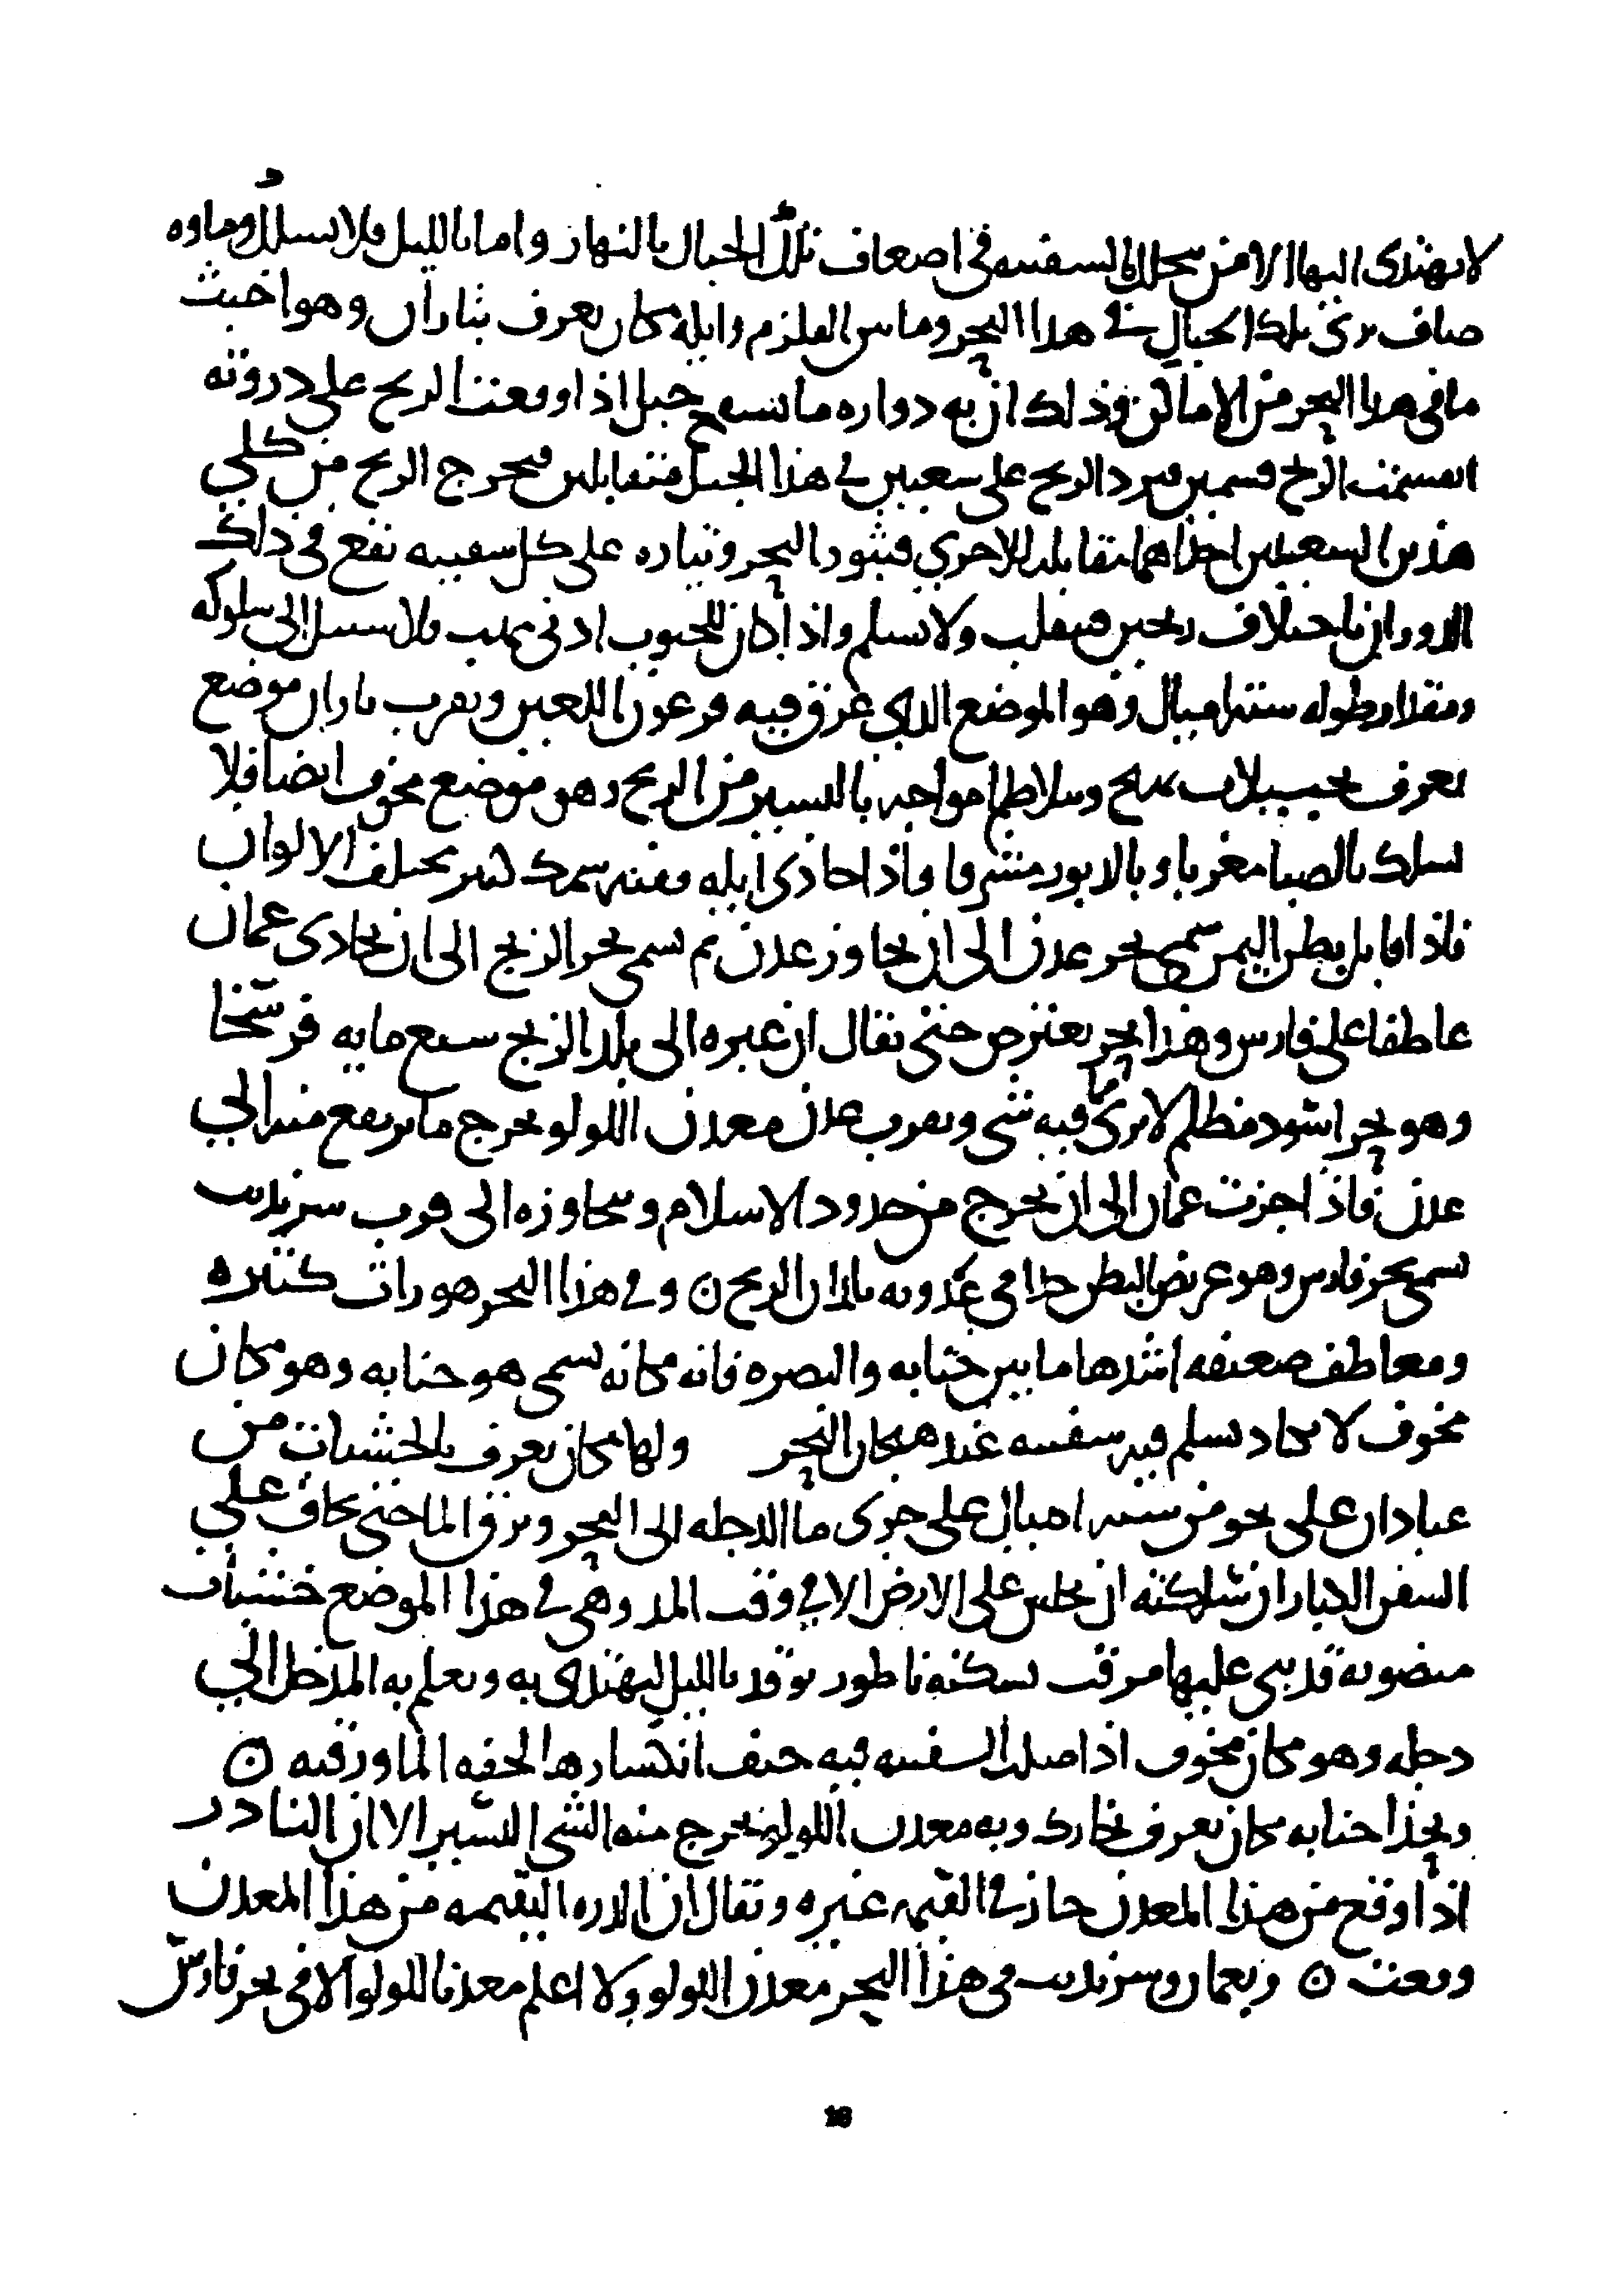 لا يهتدى اليها الا من يتخلل بالسفينه فى اضعاف تلك الجبال بالنهار واما بالليل فلا يسلك وماوه
صاف ترى تلك الجبال في هذا البحر وما بين القلزم وايله مكان يعرف بتاران وهو اخبث
ما فى هذا البحر من الاماكن وذلك ان به دواره ما بسفح جبل اذا وقعت الريح على دروته
انقسمت الريح قسمين فيرد الريح على شعبين في هذا الجبل متقابلين فيخرج الريح من كلي
هذين الشعبين احداهما مقابله للاخرى فيثور البحر وتياره على كل سفينه تقع فى ذلك
الدوران باختلاف ريحين فينقلب ولا تسلم واذا كان للجنوب ادنى مهب فلا سبيل الى سلوكه
ومقدار طوله سته اميال وهو الموضع الذي غرق فيه فرعون اللعين وبقرب تاران موضع
يعرف بجبيلات يهيج وتتلاطم امواجه باليسير من الريح وهو موضع مخوف ايضا فلا
يسلك بالصبا مغربا وبالدبور مشرقا واذا حاذى ايله ففيه سمك كثير مختلف الالوان
فاذا قابل بطن اليمن سمى بحر عدن الى ان يجاوز عدن ثم يسمى بحر الزنج الى ان يحاذى عمان
عاطفا على فارس وهذا بحر يعترض حتى يقال ان عبره الى بلد الزنج سبع مايه فرسخا
وهو بحر اسود مظلم لا يرى مما فيه شى وبقرب عدن معدن اللولو يخرج ما يرتفع منه الي
عدن فاذا اجزت عمان الى ان يخرج من حدود الاسلام وتتجاوزه الى قرب سرنديب
يسمى بحر فارس وهو عريض البطن جدا فى عدوته بلدان الزنج ۞ وفي هذا البحر هورات كثيره
ومعاطف صعبه اشدها ما بين جنابه والبصره فانه مكانه يسمى هو جنابه وهو مكان
مخوف لا تكاد تسلم فيه سفينه عند هيجان البحر ولها مكان يعرف بالخشبات من
عبادان على نحو من سته اميال على جرى ما الدجله الى البحر ويرق الما حتى يخاف علي
السفن الكبار ان سلكته ان تجلس على الارض الا في وقت المد وهى في هذا الموضع خشبات
منصوبه قد بنى عليها مرقب يسكنه ناطور يوقد بالليل ليهتدى به ويعلم به المدخل الي
دجله وهو مكان مخوف اذا ضلت السفينه فيه خيف انكسارها لخفه الما ورقته ۞
وبحذا جنابه مكان يعرف بخارك وبه معدن اللولو يخرج منه الشى اليسير الا ان النادر
اذا وقع من هذا المعدن جاز في القيمه غيره ويقال ان الدره اليتيمه من هذا المعدن
وقعت ۞ وبعمان وسرنديب فى هذا البحر معدن اللولو ولا اعلم معدنا للولو الا فى بحر فارس
16